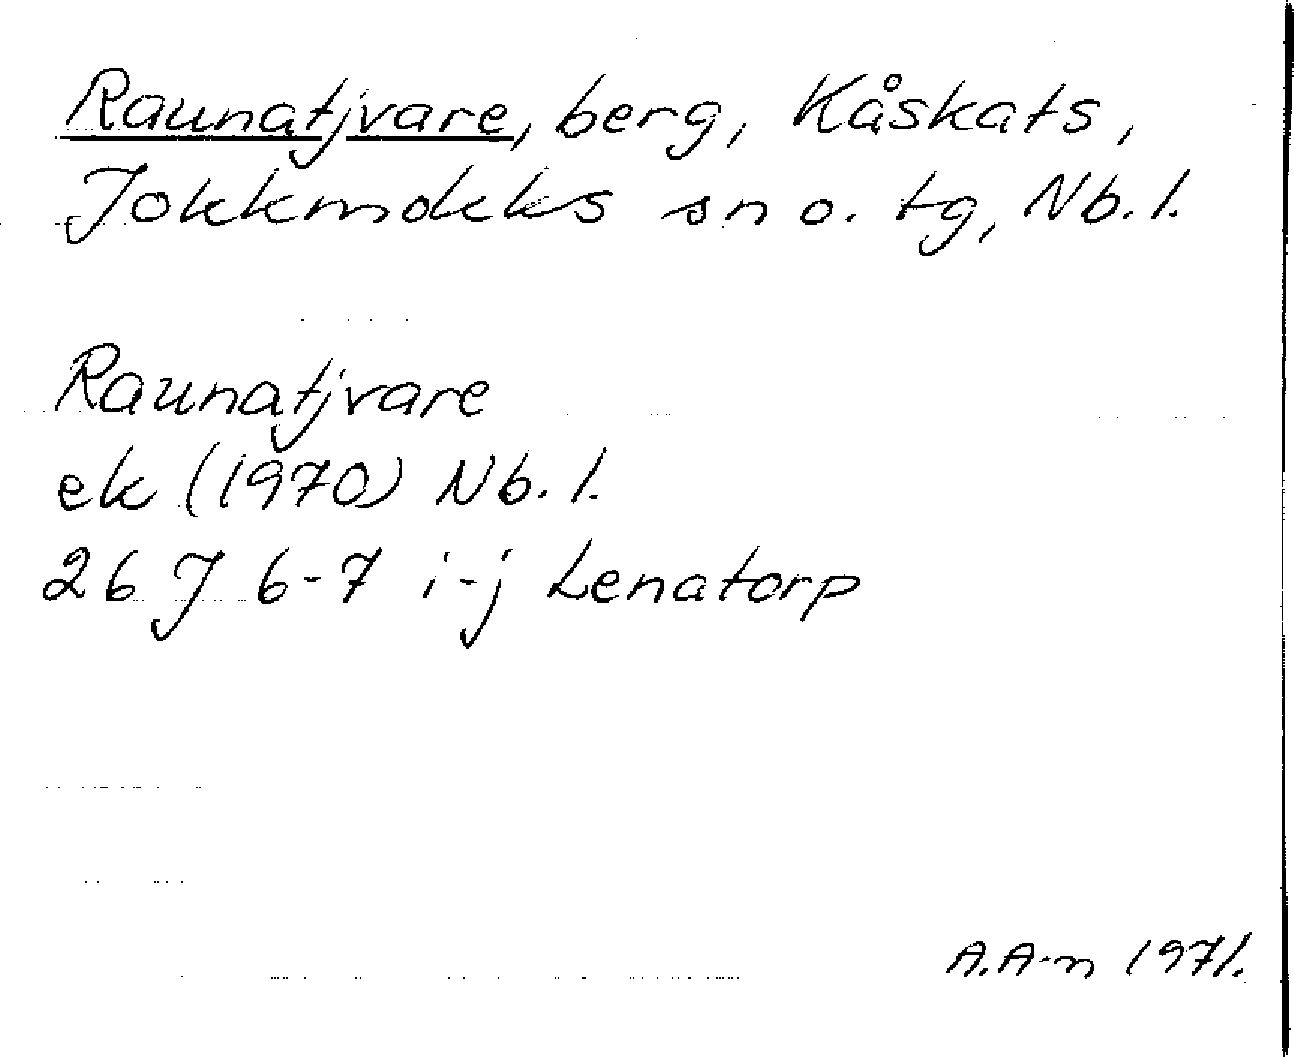 Raunatjvare, berg, Kåskats,
Jokkmokks sn o. tg, Nb. l.
Raunatjvare
ek (1970) Nb. l.
26 J 6-7 i-j Lenatorp
A.A-n 1971.